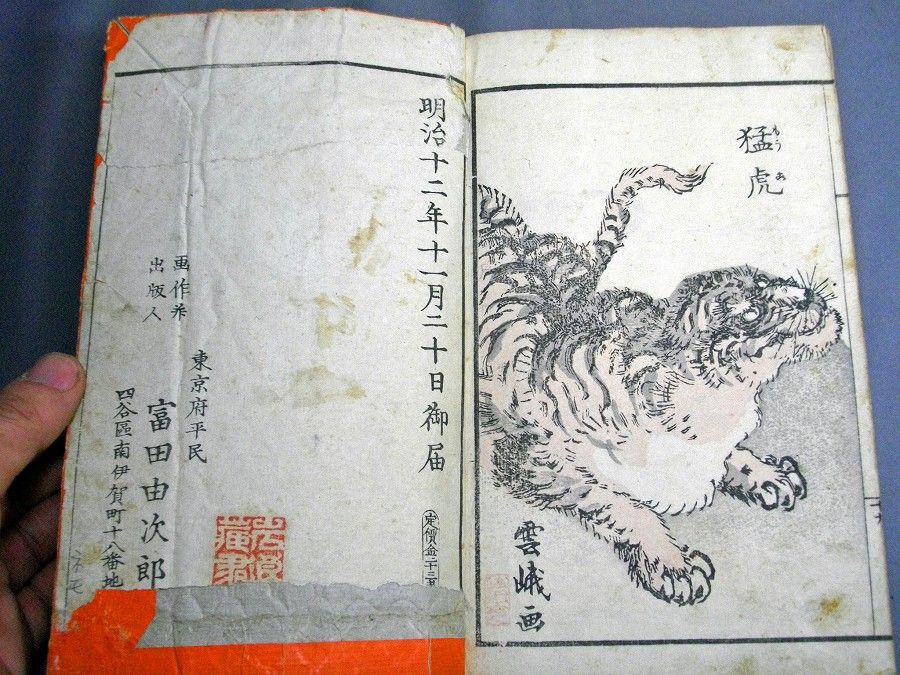 猛虎
もう
雲峨画
明治十二年十一月二十日御届
定價金二十二五
東京府平民
画作并
出版人
富田由次郎
四谷區南伊賀町十八番地